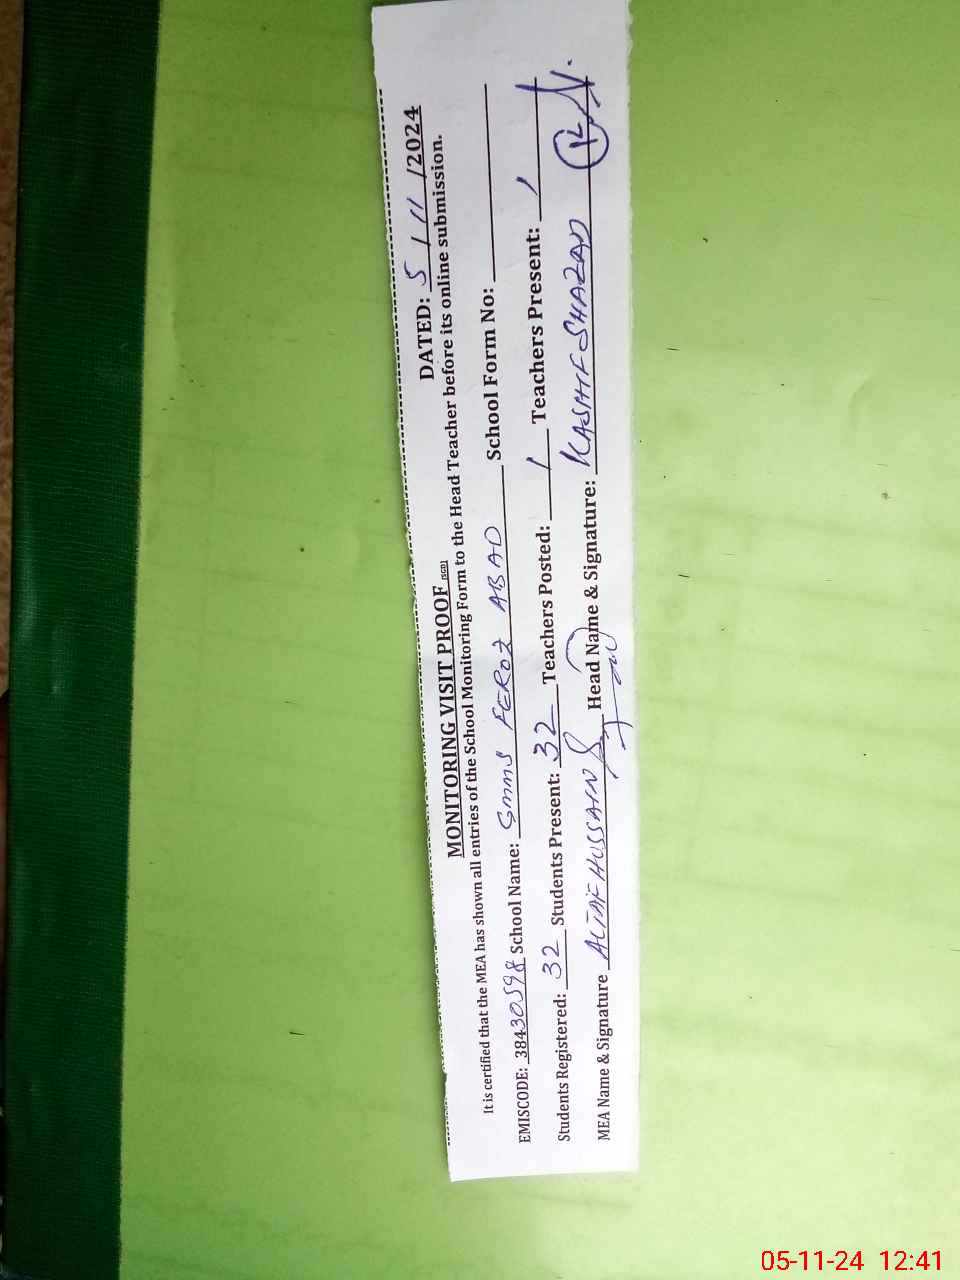 DATED: 5 / 11 /2024
MONITORING VISIT PROOF (SGD)
It is certified that the MEA has shown all entries of the School Monitoring Form to the Head Teacher before its online submission.
EMISCODE: 38430598 School Name: GMMS FEROZ ABAD School Form No:
Students Registered: 32 Students Present: 32 Teachers Posted: 1 Teachers Present: 1
MEA Name & Signature ALTAF HUSSAIN Head Name & Signature: KASHIF SHAZAD
05-11-24 12:41